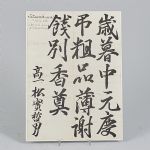 歳暮中元慶
弔粗品薄謝
餞別香奠
高一 松實哲男